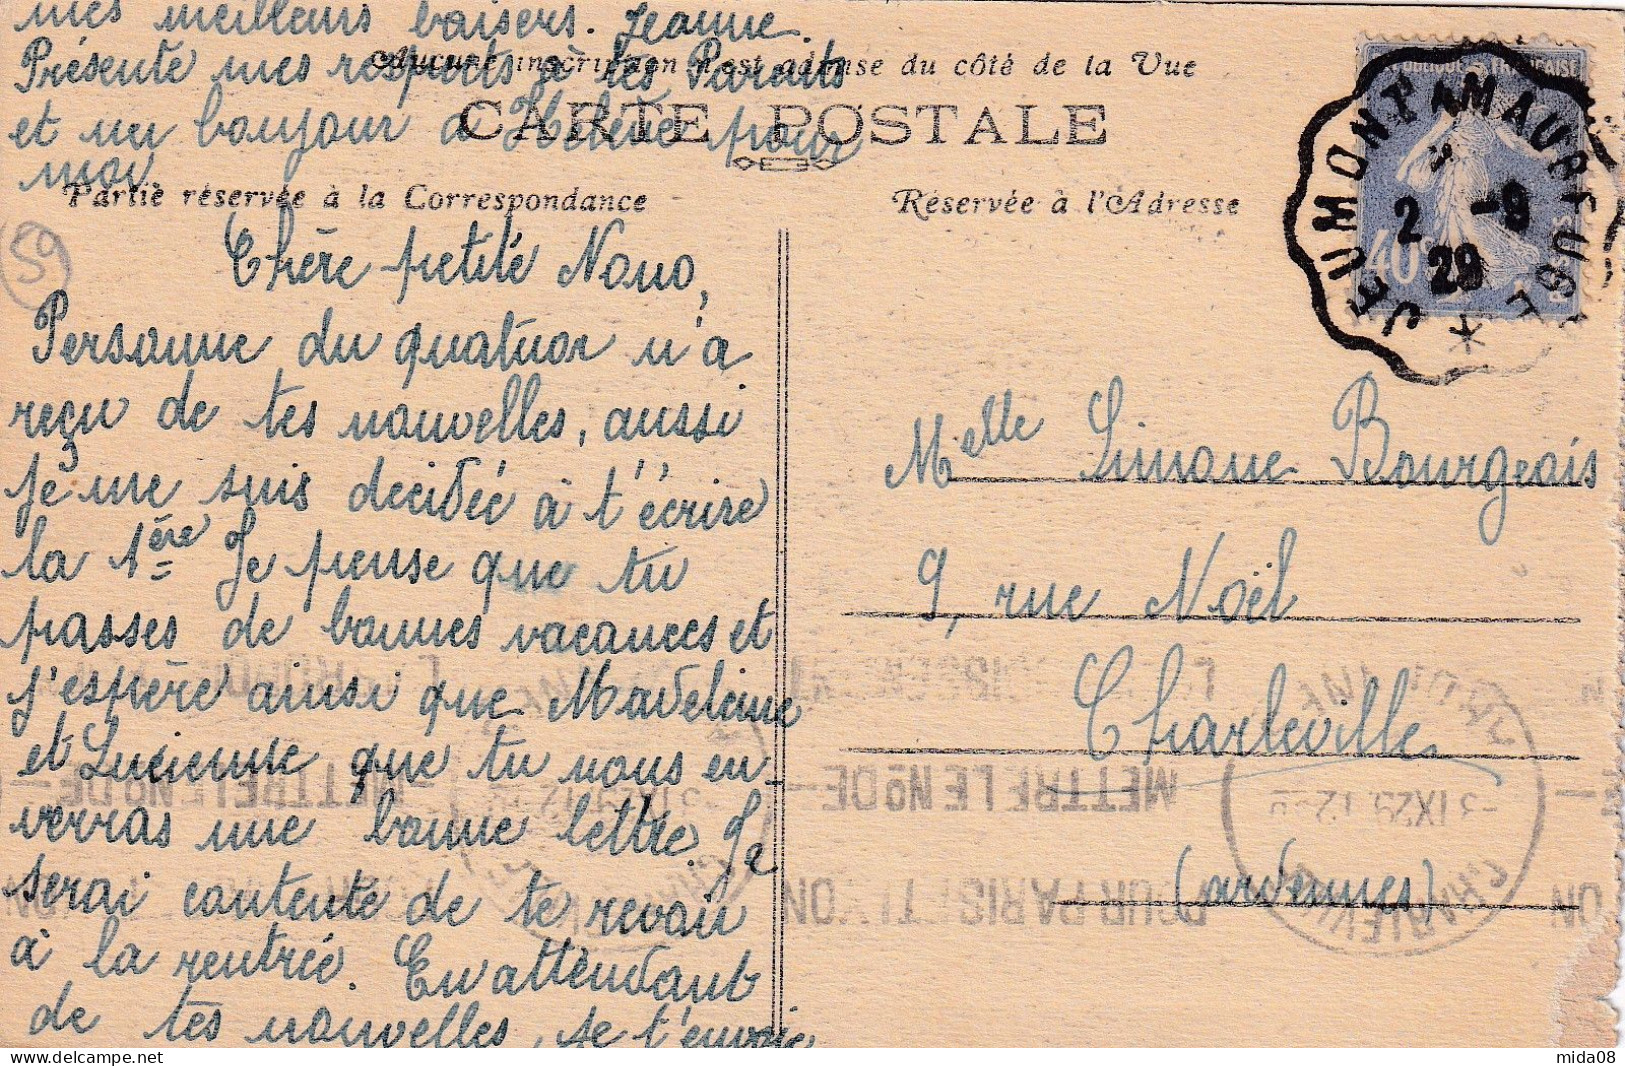 mes meilleurs baisers. Jeanne.
Présente mes respects à tes Parents
et un bonjour à Hélène pour
moi
Aucune inscription n'est admise du côté de la Vue
CARTE POSTALE
Partie réservée à la Correspondance
Réservée à l'Adresse
59
Chère petite Nono,
Personne du quatuor n'a
reçu de tes nouvelles, aussi
je me suis décidée à t'écrire
la 1ère Je pense que tu
passes de bonnes vacances et
j'espère ainsi que Madeleine
et Lucienne que tu nous en-
verras une bonne lettre. Je
serai contente de te revoir
à la rentrée. En attendant
de tes nouvelles, je t'envoie
JEUMONT A MAUBEUGE
2 -9
29
40c
Melle Simone Bourgeois
9, rue Noël
Charleville
(Ardennes)
METTRE LE No DE
POUR PARIS
CHARLEVILLE
mida08